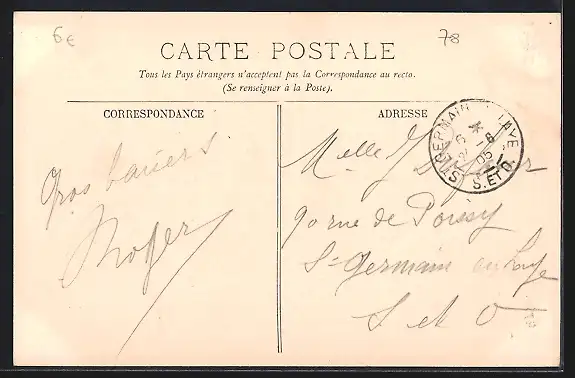 6€
78
CARTE POSTALE
Tous les Pays étrangers n'acceptent pas la Correspondance au recto.
(Se renseigner à la Poste).
CORRESPONDANCE
ADRESSE
Gros baisers
Roger
Melle J
90 rue de Poissy
St Germain en Laye
S et O
ST GERMAIN LAYE
6
2 -6
05
S. ET O.